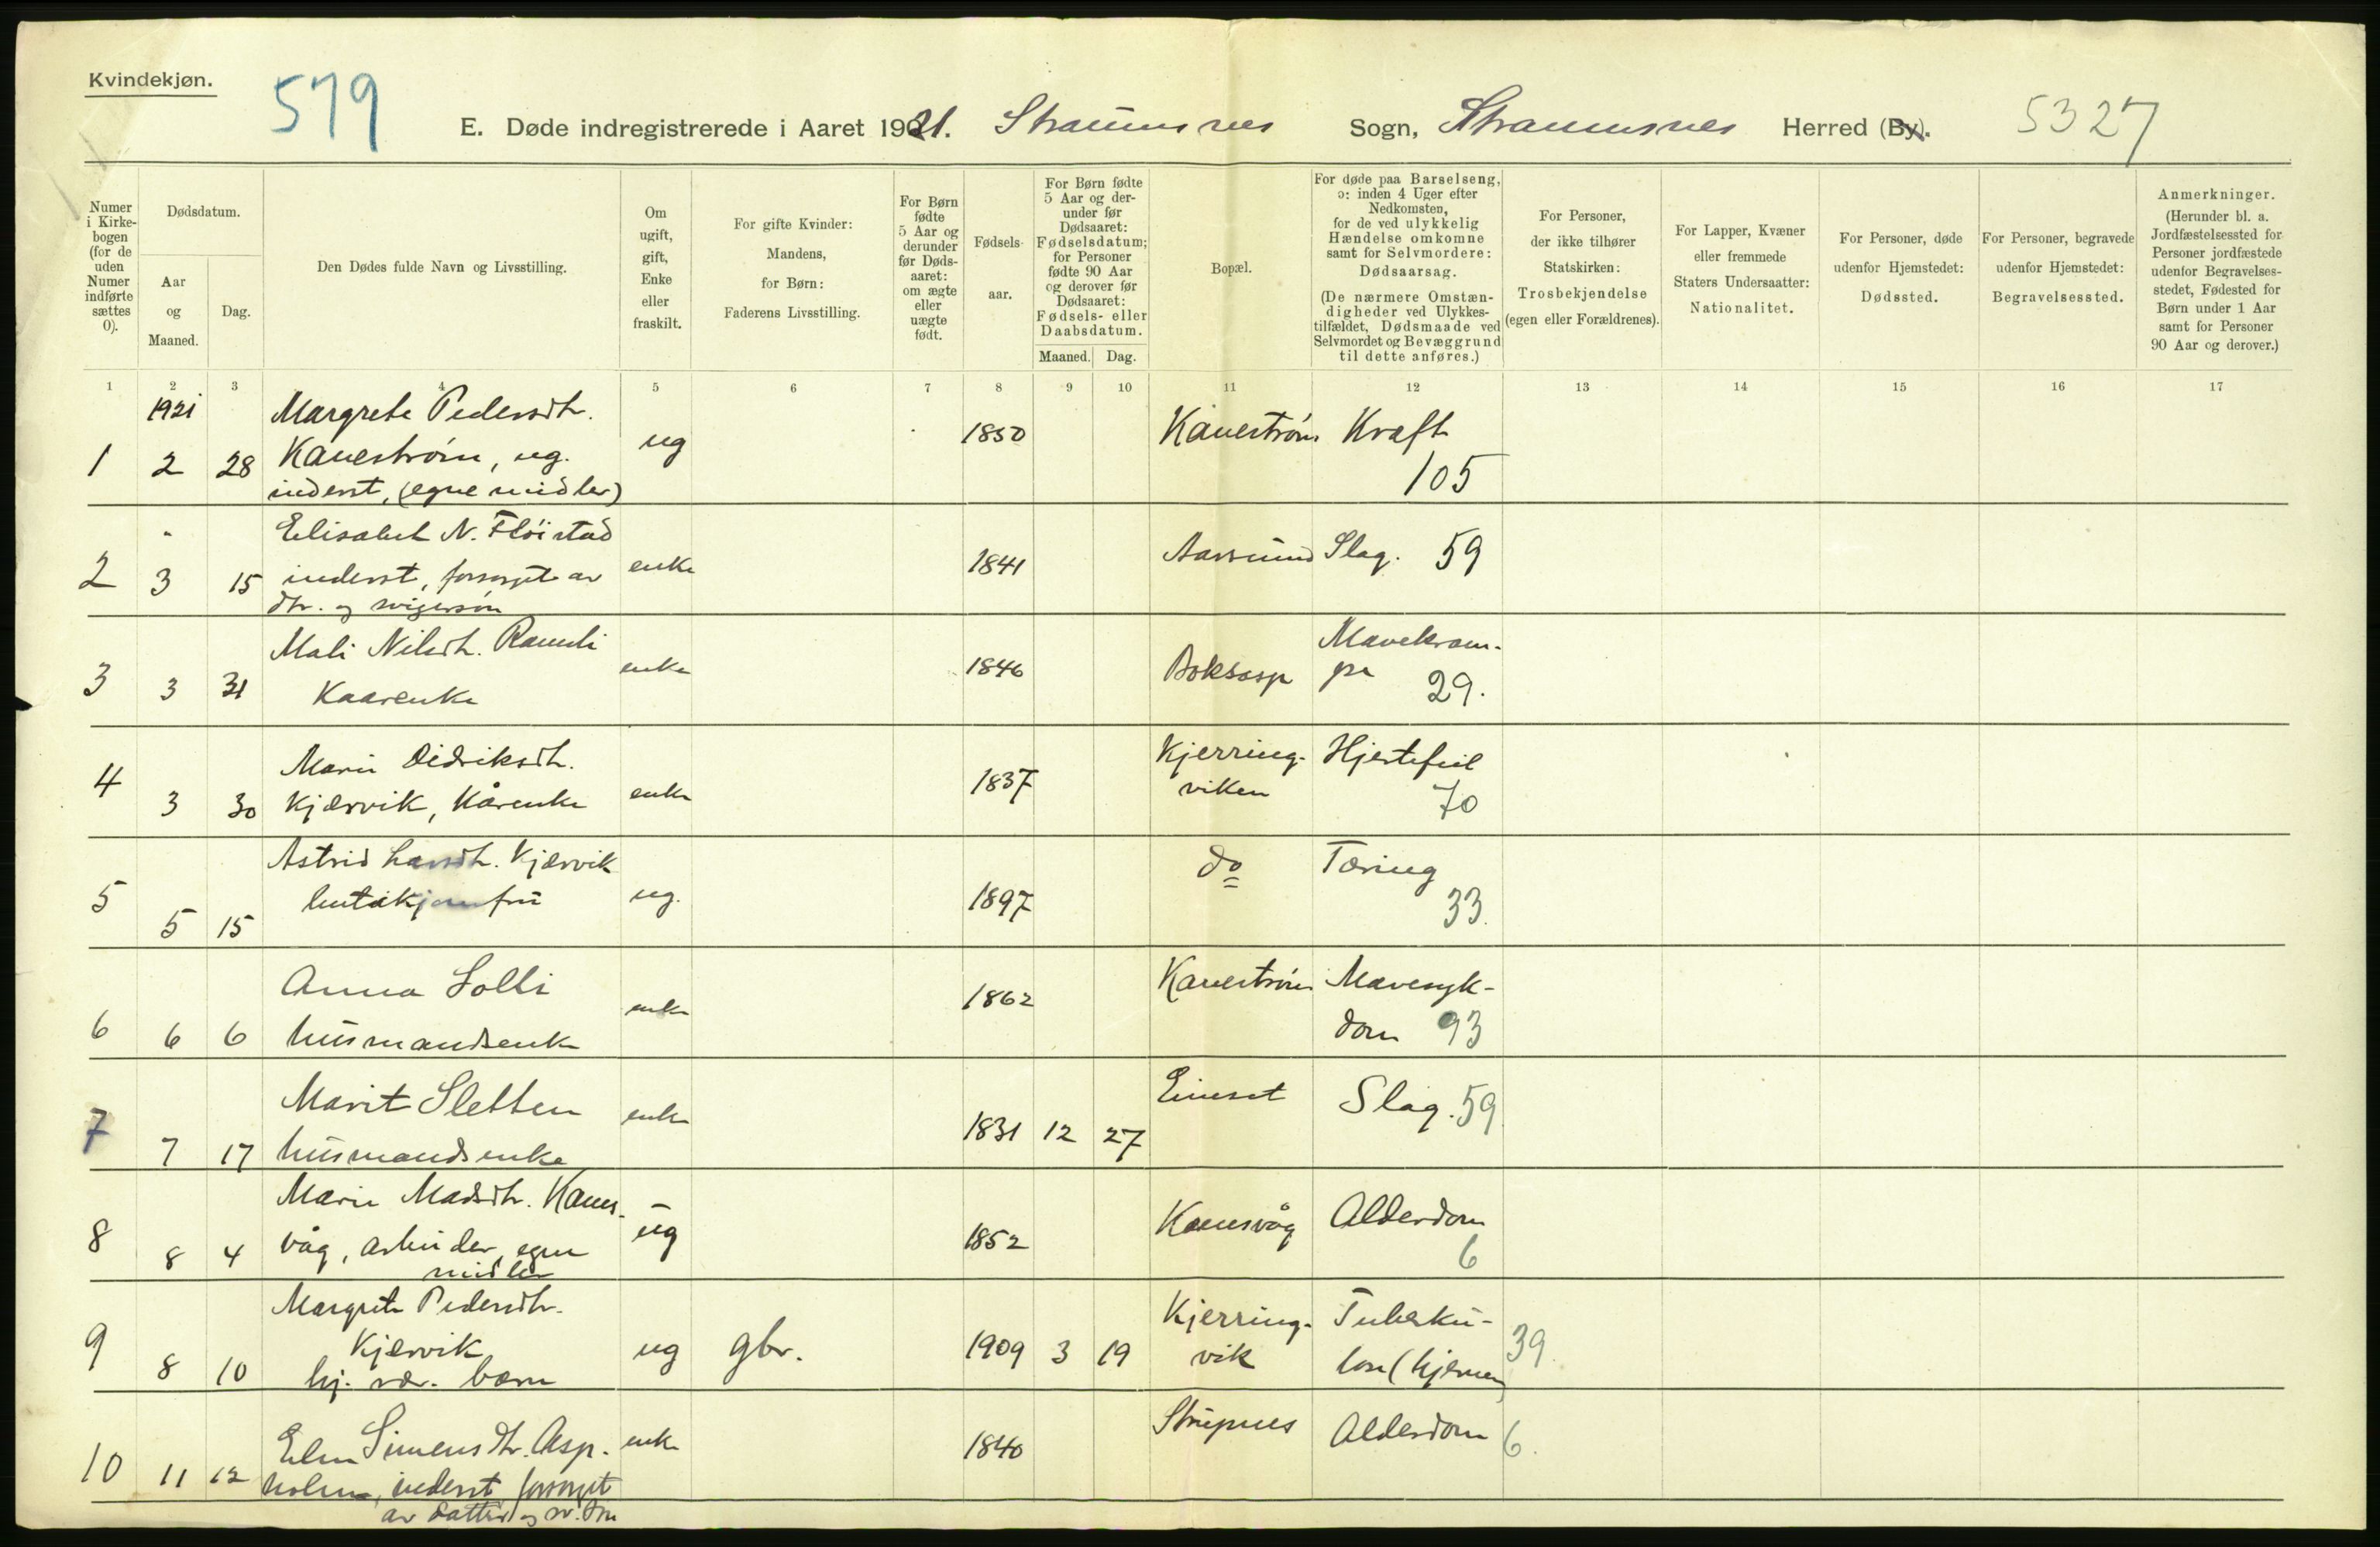 Kvindekjøn.
579
E. Døde indregistrerede i Aaret 1921. Straumsnes Sogn, Straumsnes Herred (By). 5327
Numer i Kirke-bogen (for de uden Numer indførte sættes 0).
Dødsdatum.
Aar og Maaned.
Dag.
Den Dødes fulde Navn og Livsstilling.
Om ugift, gift, Enke eller fraskilt.
For gifte Kvinder: Mandens, for Børn: Faderens Livsstilling.
For Børn fødte 5 Aar og derunder før Døds-aaret: om ægte eller uægte født.
Fødsels-aar.
For Børn fødte 5 Aar og der-under før Dødsaaret: Fødselsdatum; for Personer fødte 90 Aar og derover før Dødsaaret: Fødsels- eller Daabsdatum.
Maaned. Dag.
Bopæl.
For døde paa Barselseng, ɔ: inden 4 Uger efter Nedkomsten, for de ved ulykkelig Hændelse omkomne samt for Selvmordere: Dødsaarsag.
(De nærmere Omstæn-digheder ved Ulykkes-tilfældet, Dødsmaade ved Selvmordet og Bevæggrund til dette anføres.)
For Personer, der ikke tilhører Statskirken: Trosbekjendelse (egen eller Forældrenes).
For Lapper, Kvæner eller fremmede Staters Undersaatter: Nationalitet.
For Personer, døde udenfor Hjemstedet: Dødssted.
For Personer, begravede udenfor Hjemstedet: Begravelsessted.
Anmerkninger.
(Herunder bl. a. Jordfæstelsessted for Personer jordfæstede udenfor Begravelses-stedet, Fødested for Børn under 1 Aar samt for Personer 90 Aar og derover.)
1 2 3 4 5 6 7 8 9 10 11 12 13 14 15 16 17
1921 Margrete Pedersdtr.
1 2 28 Kanestrøm, ug. ug 1850 Kanestrøm Kraft
inderst, (egne midler) 105
Elisabet N. Fløistad
2 3 15 inderst, forsørget av enke 1841 Aarsund Slag. 59
dtr. og svigersøn
Mali Nilsdtr. Ramsli Mavekram-
3 3 31 Kaarenke enke 1846 Boksasp pe 29.
Marie Didriksdtr. Kjerring- Hjertefeil
4 3 30 Kjærvik, Kårenke enke 1837 viken 70
Astrid Larsdtr. Kjærvik do Tæring
5 5 15 butikjomfru ug. 1897 33.
Anna Solli enke 1862 Kanestrøm Mavesyk-
6 6 6 husmandsenke dom 93
Marit Sletten enke Einset Slag. 59
7 7 17 husmandsenke 1831 12 27
Marie Madsdtr. Kams- Kamsvåg Alderdom
8 8 4 våg, arbeider, egne ug 1852 6
midler
Margrete Pedersdtr. Kjerring- Tuberku-
9 8 10 Kjærvik ug gbr. 1909 3 19 vik lose (hjerne) 39.
hj. vær. barn
10 11 12 Elen Simensdtr. Asp- enke 1840 Stripnes Alderdom 6.
holm, inderst forsørget
av datter og sv. søn